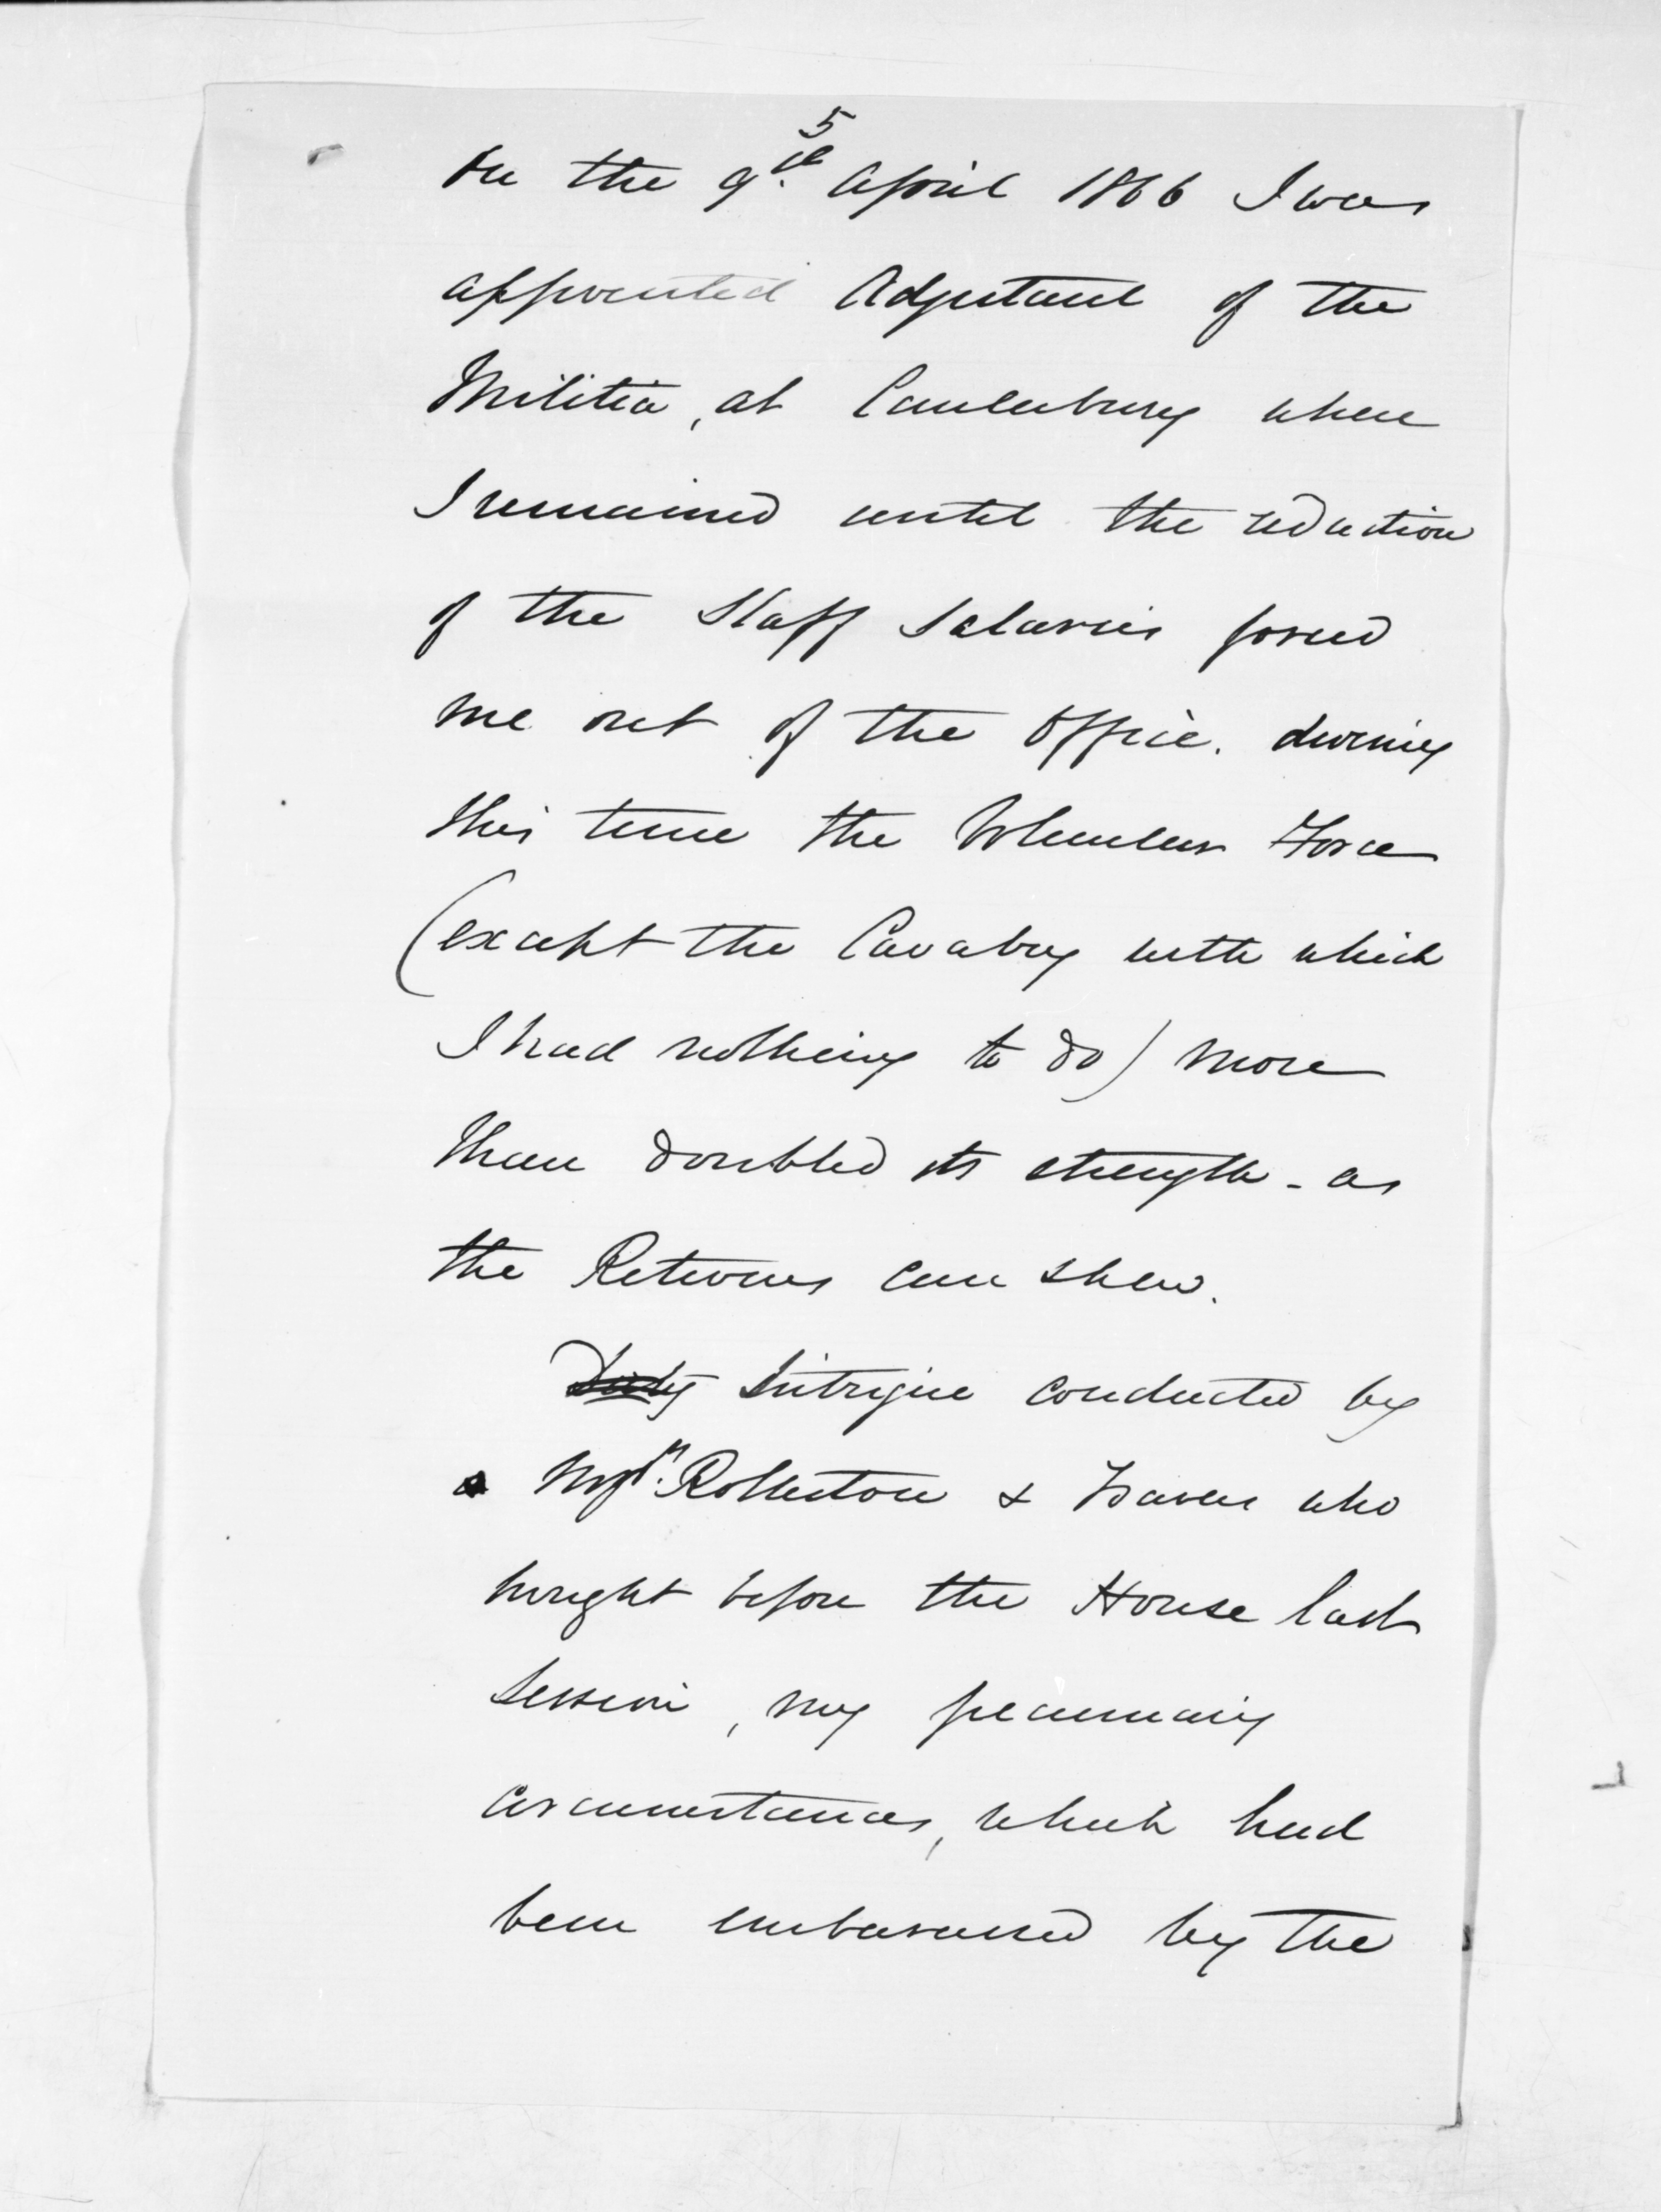 5
On the 9th. April 1866 I was
appointed Adjutant of the
Militia, at Canterbury where
I remained until the reduction
of the Staff Salaries forced
me out of the Office. during
this time the Volunteer Force
(except the Cavalry with which
I had nothing to do) more
than doubled its strength - as
the Returns can shew.
Intrigue conducted by
Rolleston & Travers who
brought before the House last
Session, my pecuniary
circumstances, which had
been embarassed by the